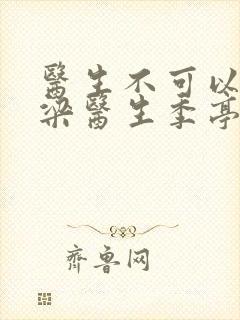 醫生不可以
梁醫生季亭
齊魯网